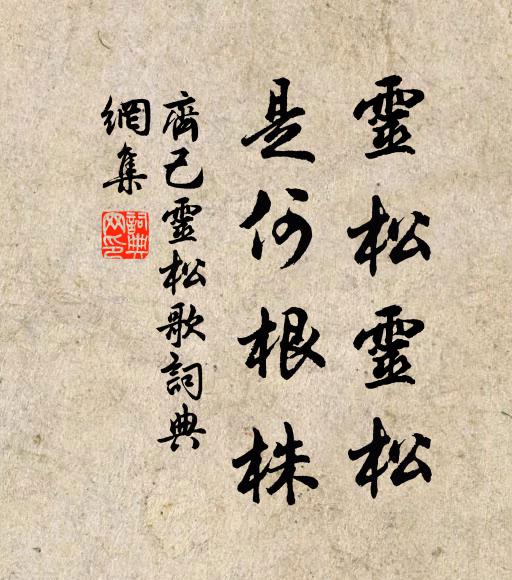 靈松靈松
是何根株
齊己靈松歌詞典
網集
詞典網印